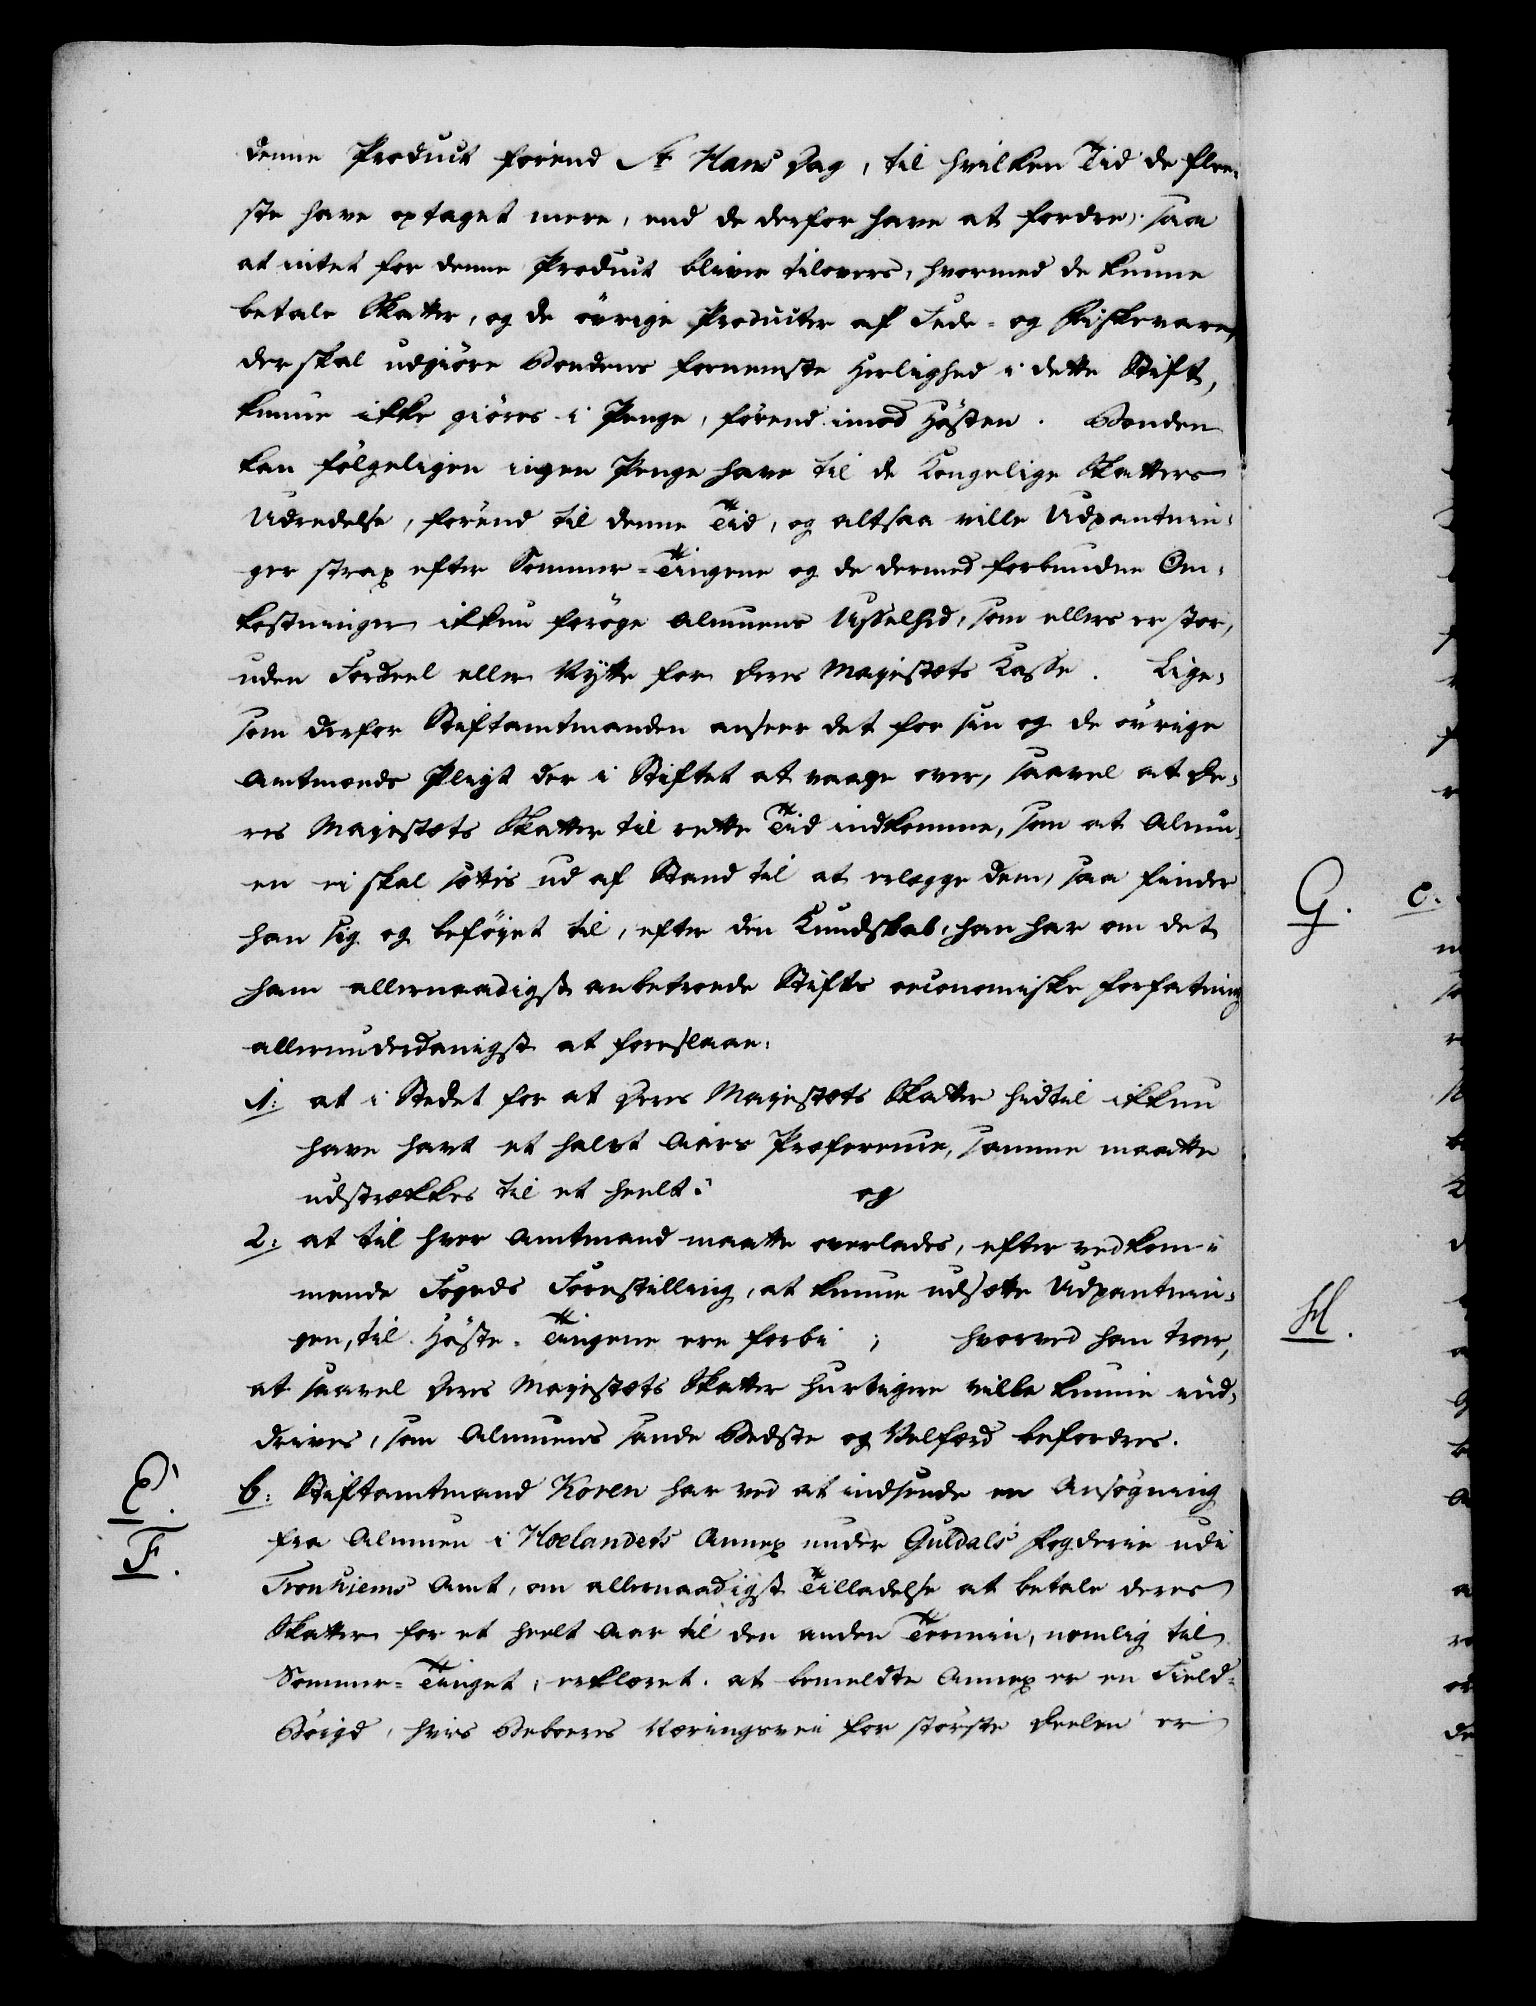 denne Product förend St Hans Dag, til hvilken Tid de flee¬
ste have optaget mere, end de derfor have at fordre, saa
at intet for denne Product bliver tilovers, hvormed de kunne
betale Skatter, og de övrige Producter af Fede- og Fiskevarer,
der skal udgiöre Bondens fornemste Herlighed i dette Stift,
kunne ikke giöres i Penge, förend imod Hösten. Bonden
kan fölgeligen ingen Penge have til de Kongelige Skatters
Udredelse, förend til denne Tid, og altsaa ville Udpantnin¬
ger strax efter Sommer-Tingene og de dermed forbundne Om¬
kostninger ikkun foröge Almuens Usselhed, som ellers er stor,
uden Fordeel eller Nytte for Deres Majestæts Kasse. Lige¬
som derfor Stiftamtmanden anseer det for sin og de övrige
Amtmænds Pligt der i Stiftet at vaage over, saavel at De¬
res Majestæts Skatter til rette Tid indkomme, som at Almu¬
en ei skal sættes ud af Stand til at erlægge dem, saa finder
han sig og beföyet til, efter den Kundskab, han har om det
ham allernaadigst anbetroede Stifts oeconomiske Forfatning
allerunderdanigst at foreslaae:
1: at i Stedet for at Deres Majestæts Skatter hidtil ikkun
have havt et halvt Aars Præference, samme maatte
udstrækkes til et heelt: og
2: at til hver Amtmand maatte overlades, efter vedkom¬
mende Fogeds Forestilling, at kunne udsætte Udpantnin¬
gen, til Höste-Tingene ere forbi; hvorved han troer,
at saavel Deres Majestæts Skatter hurtigere ville kunne ind¬
drives, som Almuens sande Bedste og Velfærd befordres.
E.
F.
b: Stiftamtmand Koren har ved at indsende en Ansögning
fra Almuen i Hoelandets Annex under Guldals Fogderie udi
Tronhiems Amt, om allernaadigst Tilladelse at betale deres
Skatter for et heelt Aar til den anden Termin, nemlig til
Sommer-Tinget, erklæret: at bemeldte Annex er en Field-
Böigd, hvis Beboeres Næringsvei for störste Deelen er
G.
c:
H.